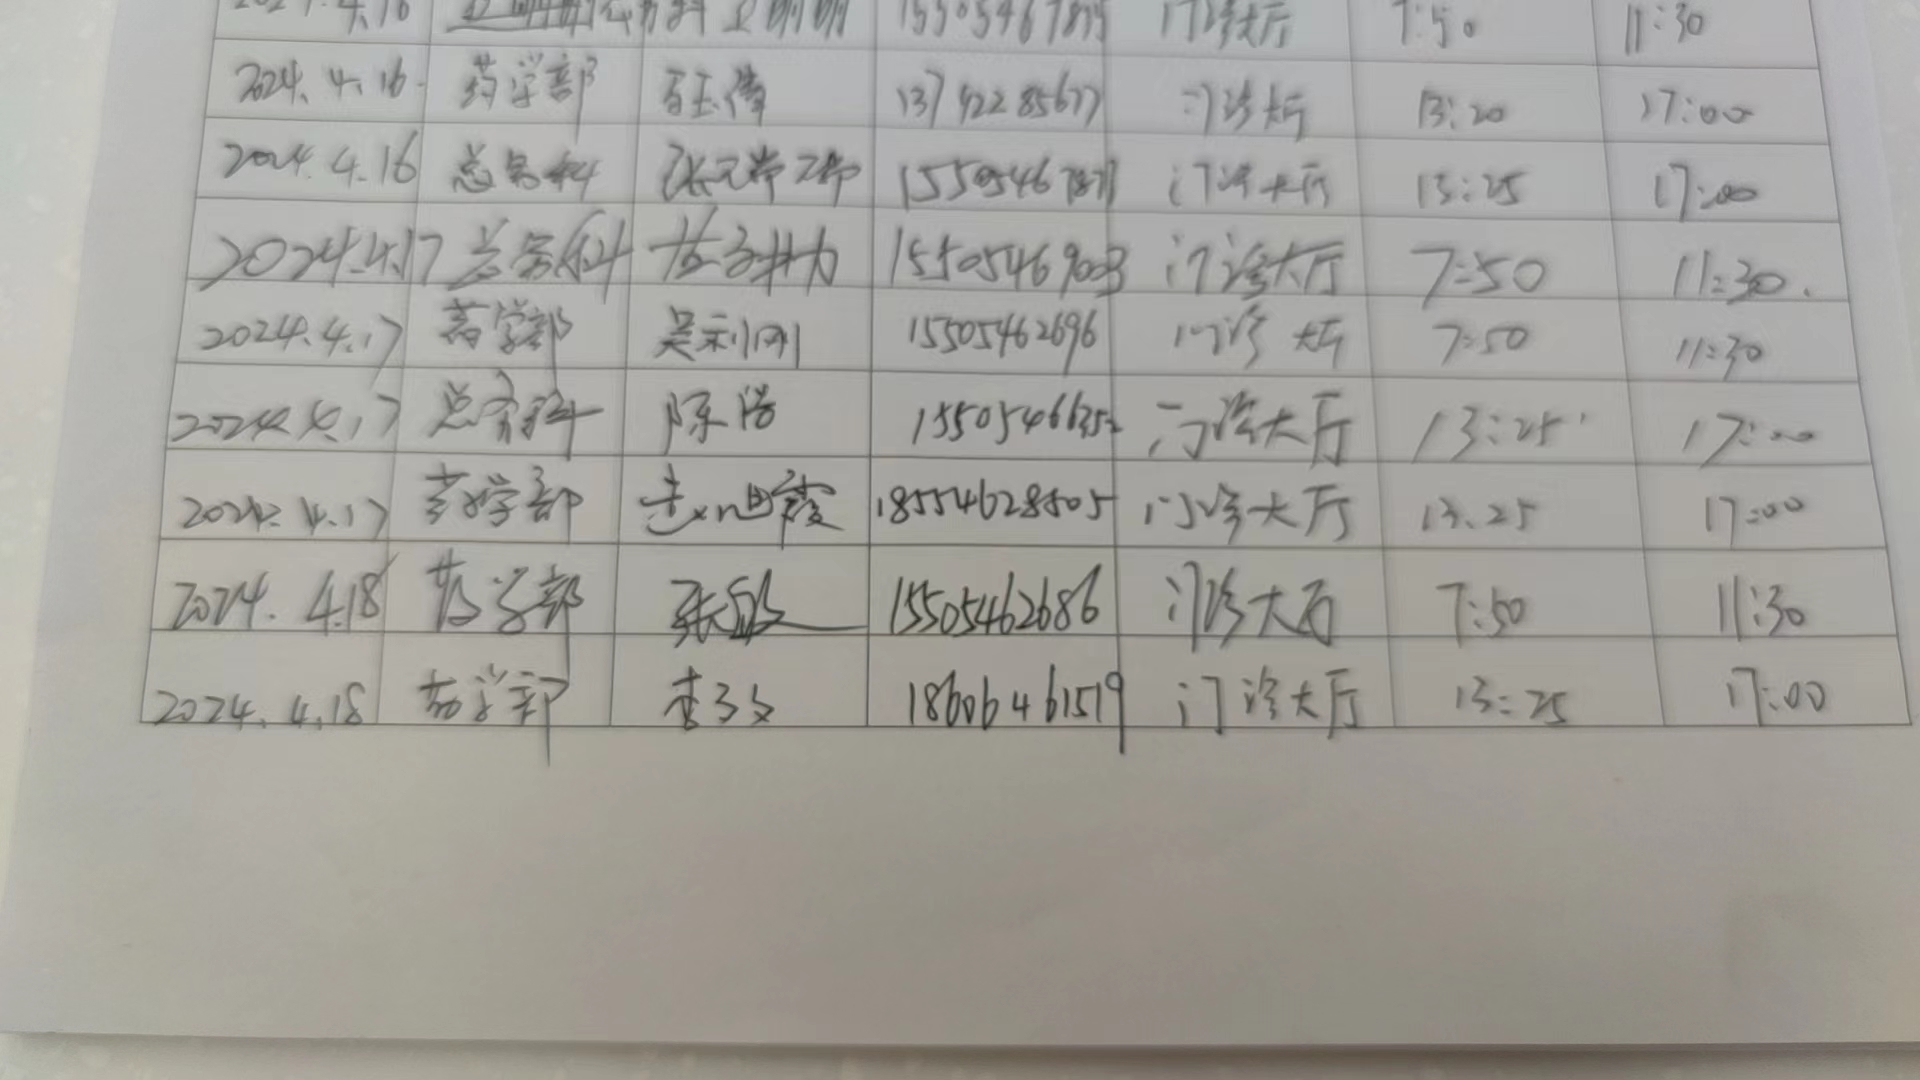 2024.4.16 15505467875 门诊大厅 7:50 11:30
2024.4.16. 药学部 13792285677 门诊大厅 13:20 17:00
2024.4.16 总务科 门诊大厅 13:25 17:00
2024.4.17 总务科 15505469003 门诊大厅 7:50 11:30.
2024.4.17 药学部 吴利刚 15505462696 门诊大厅 7:50 11:30
2024.4.17 总务科 陈浩 门诊大厅 13:25 17:00
2024.4.17 药学部 赵旭霞 18554628505 门诊大厅 13.25 17:00
2024.4.18 药学部 张敏 15505462686 门诊大厅 7:50 11:30
2024.4.18 药学部 李子文 18606461519 门诊大厅 13:25 17:00